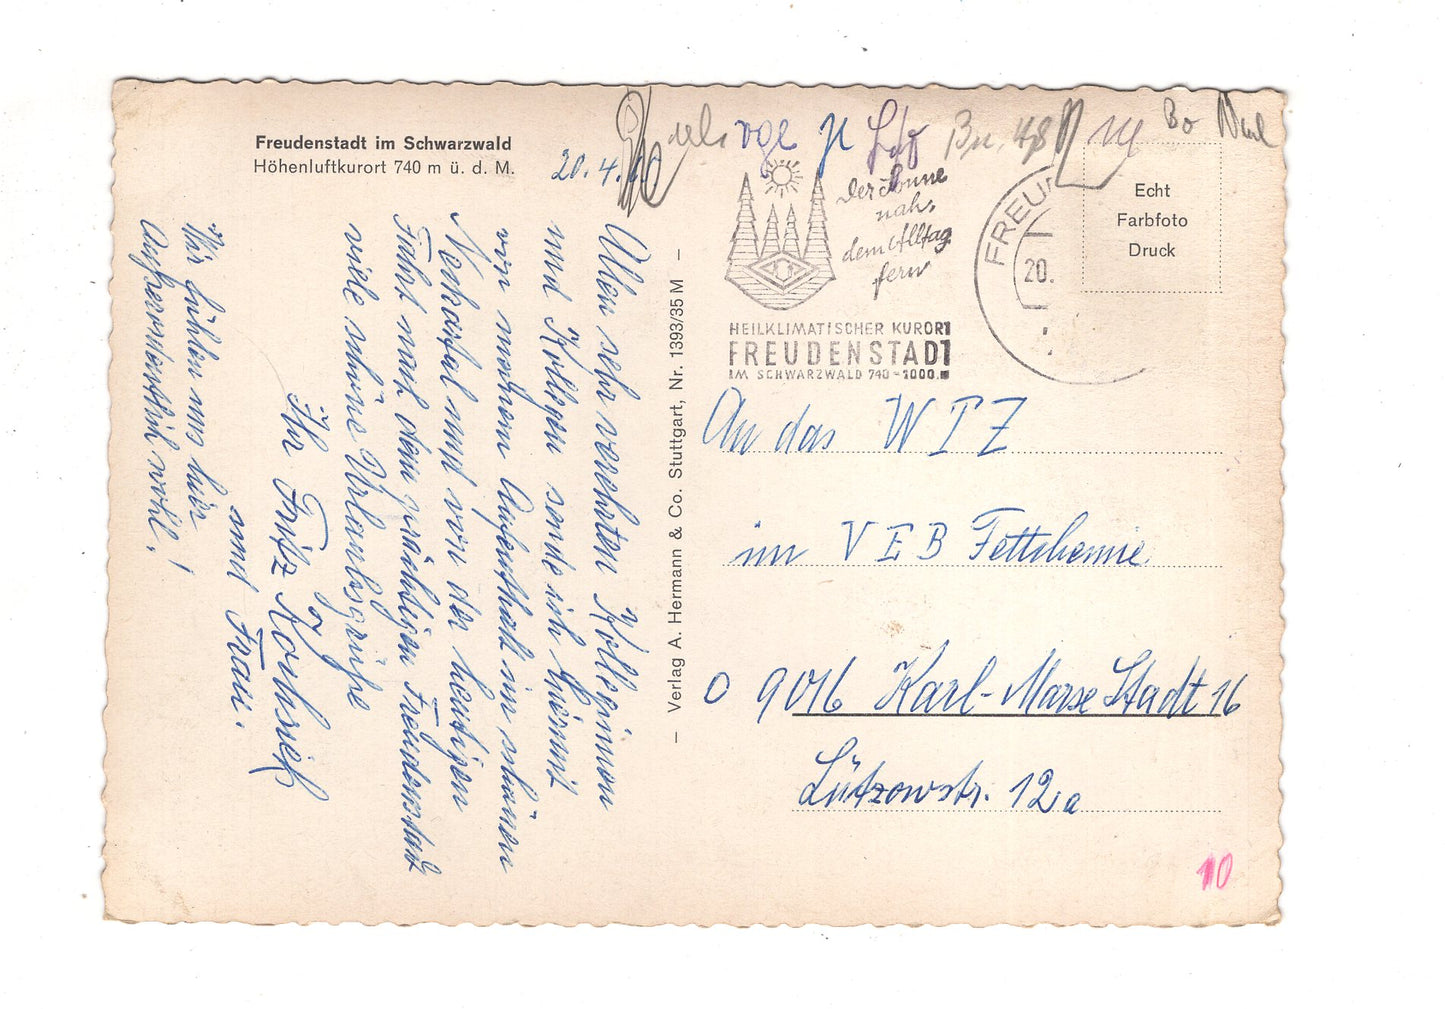 Freudenstadt im Schwarzwald
Höhenluftkurort 740 m ü. d. M.
20. 4.
Allen sehr verehrten Kolleginnen
und Kollegen sende ich hiermit
von meinem Aufenthalt im schönen
Neckartal und von der heutigen
Fahrt nach dem prächtigen Freudenstadt
viele schöne Urlaubsgrüße
Ihr Fritz
und Frau.
Wir fühlen uns hier
außerordentlich wohl!
– Verlag A. Hermann & Co. Stuttgart, Nr. 1393/35 M –
Der Sonne
nah,
dem Alltag
fern
HEILKLIMATISCHER KURORT
FREUDENSTADT
IM SCHWARZWALD 740-1000 m
FREU
20.
Echt
Farbfoto
Druck
An das WTZ
im VEB Fettchemie
9016 Karl-Marx-Stadt 16
Lützowstr. 12a
10